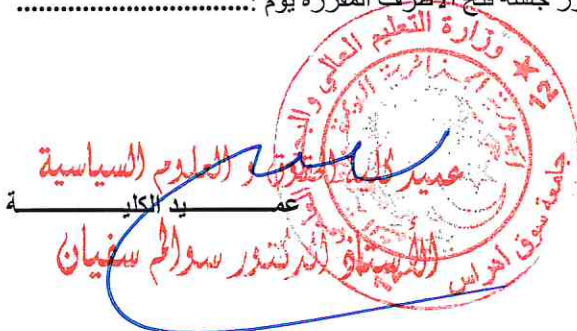 جلسة فتح الأظرف المقررة يوم :..............................
وزارة التعليم العالي والبحث
جامعة سوق أهراس
12
عميد كلية الحقوق و العلوم السياسية
عمـــــــــــيد الكليـــــــــــــة
الأستاذ الدكتور سوالم سفيان